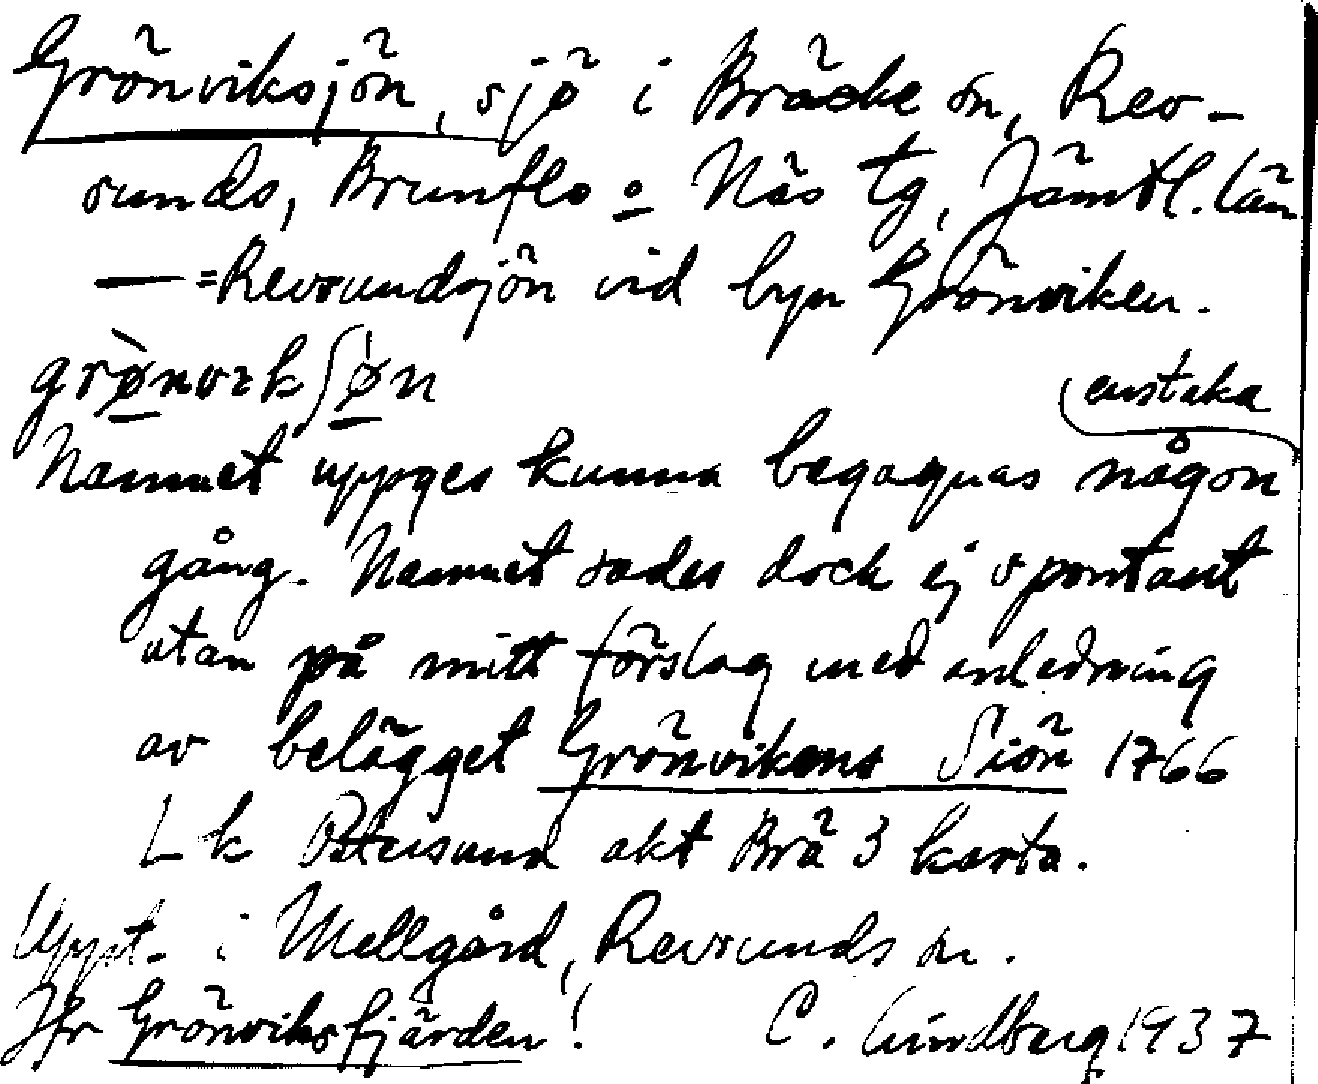 Grönviksjön, sjö i Bräcke sn, Rev-
sunds, Brunflo o Näs tg, Jämtl. län
— = Revsundsjön vid byn Grönviken.
grø̀nvɪkʃø̀n
enstaka
Namnet uppges kunna begagnas någon
gång. Namnet sades dock ej spontant
utan på mitt förslag med anledning
av belägget Grönvikens Siön 1766
L k Östersund akt Brä 3 karta.
Uppt. i Mellgård, Revsunds sn.
Jfr Grönviksfjärden! C. Lindberg 1937